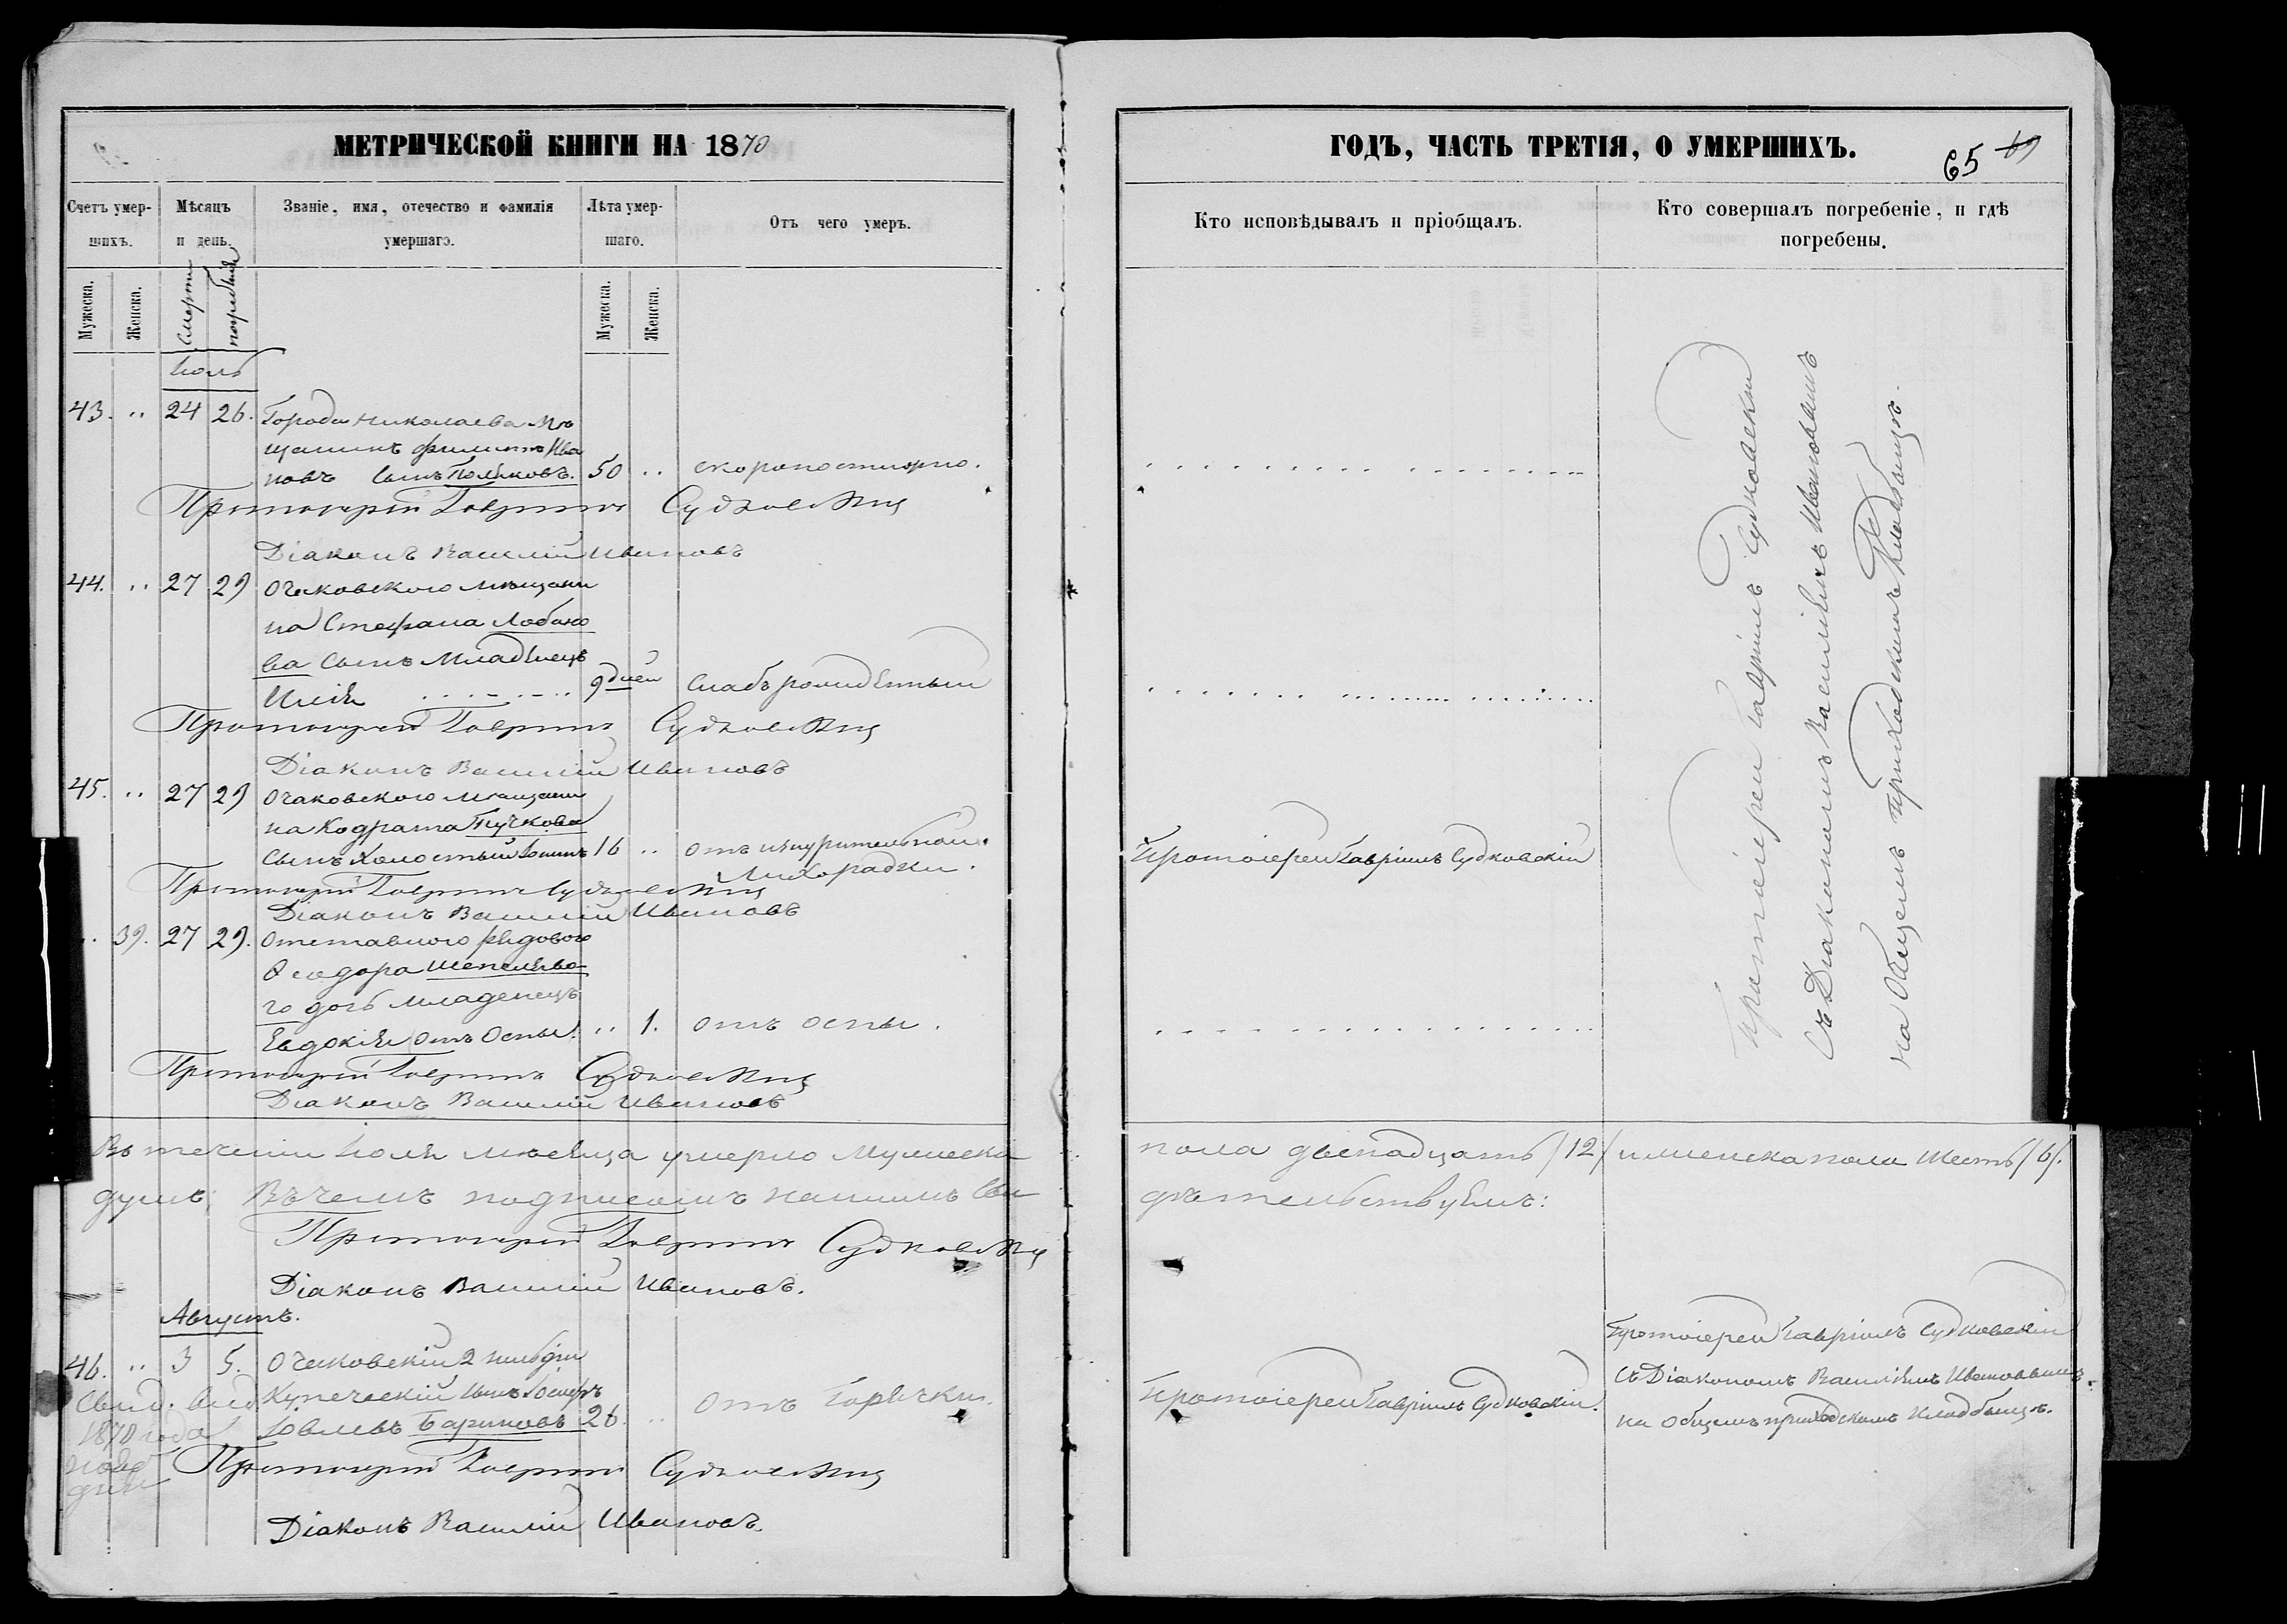 МЕТРИЧЕСКОЙ КНИГИ НА 1870
Счетъ умер-
шихъ.
Мѣсяцъ
и день.
Званіе, имя, отечество и фамилія
умершаго.
Лѣта умер-
шаго.
Отъ чего умеръ.
Мужеска.
Женска.
Смерти
погребенія
Мужеска.
Женска.
Іюль
43. „ 24 26. Города Николаева Мѣ
щанинъ Филиппъ Ива
новъ Сынъ Поляковъ. 50 „ скоропостижно.
Протоіерей Гавріилъ Судковскій
Діаконъ Василій Ивановъ
44. „ 27 29 Очаковскаго мѣщани
на Стефана Лобано
ва Сынъ Младенецъ
Илія 9 дней Слабърожденный
Протоіерей Гавріилъ Судковскій
Діаконъ Василій Ивановъ
45. „ 27 29 Очаковскаго мѣщани
на Кодрата Пучкова
Сынъ Холостый 16 „ отъ изнурительной
Лихорадки.
Протоіерей Гавріилъ Судковскій
Діаконъ Василій Ивановъ
„ 39. 27 29. Отставного рядового
Ѳеодора Шепелево
го дочь младенецъ
Евдокія отъ Оспы. „ 1. отъ оспы.
Протоіерей Гавріилъ Судковскій
Діаконъ Василій Ивановъ
Въ теченіи Іюля мѣсяца умерло Мужеска
душъ; Въ чемъ подписомъ нашимъ Сви
Протоіерей Гавріилъ Судковскій
Діаконъ Василій Ивановъ.
Августъ.
46. „ 3 5. Очаковскій 2 гильдіи
Купеческій Сынъ
Бариновъ 26. „ отъ Горячки.
Свид. выд.
1870 года
Протоіерей Гавріилъ Судковскій
Діаконъ Василій Ивановъ.
ГОДЪ, ЧАСТЬ ТРЕТІЯ, О УМЕРШИХЪ.
65 69
Кто исповѣдывалъ и пріобщалъ.
Кто совершалъ погребеніе, и гдѣ
погребены.
Протоіерей Гавріилъ Судковскій
Протоіерей Гавріилъ Судковскій
Съ Діакономъ Василіемъ Ивановымъ
на Общемъ приходскомъ Кладбищѣ.
пола двенадцать /12/ и женска пола Шесть /6/.
дѣтельствуемъ:
Протоіерей Гавріилъ Судковскій.
Протоіерей Гавріилъ Судковскій
Съ Діакономъ Василіемъ Ивановымъ
на Общемъ приходскомъ Кладбищѣ.